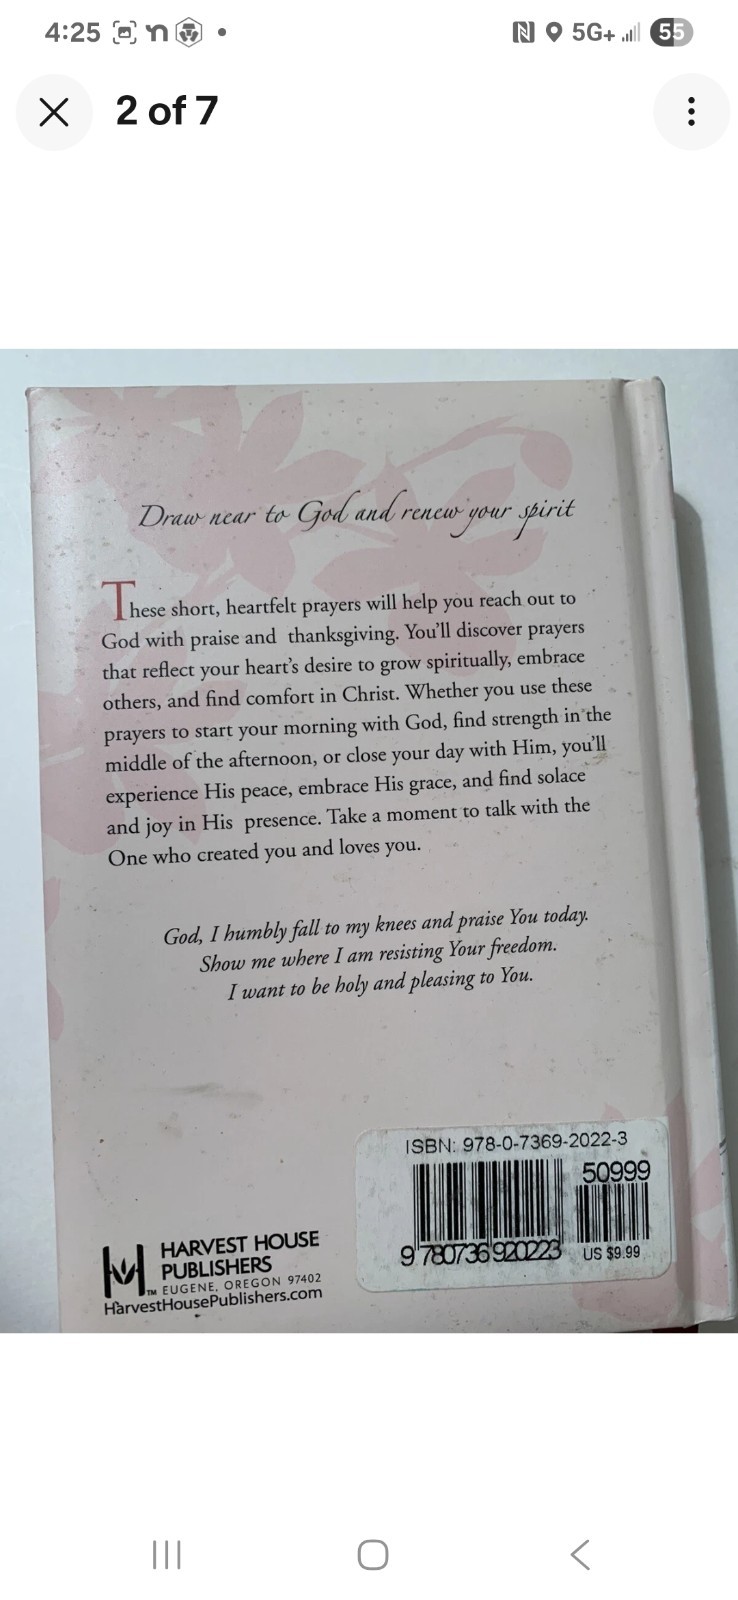 4:25
5G+
55
2 of 7
Draw near to God and renew your spirit
These short, heartfelt prayers will help you reach out to
God with praise and thanksgiving. You'll discover prayers
that reflect your heart's desire to grow spiritually, embrace
others, and find comfort in Christ. Whether you use these
prayers to start your morning with God, find strength in the
middle of the afternoon, or close your day with Him, you'll
experience His peace, embrace His grace, and find solace
and joy in His presence. Take a moment to talk with the
One who created you and loves you.
God, I humbly fall to my knees and praise You today.
Show me where I am resisting Your freedom.
I want to be holy and pleasing to You.
ISBN: 978-0-7369-2022-3
50999
9 780736 920223
US $9.99
HARVEST HOUSE
PUBLISHERS
TM EUGENE, OREGON 97402
HarvestHousePublishers.com